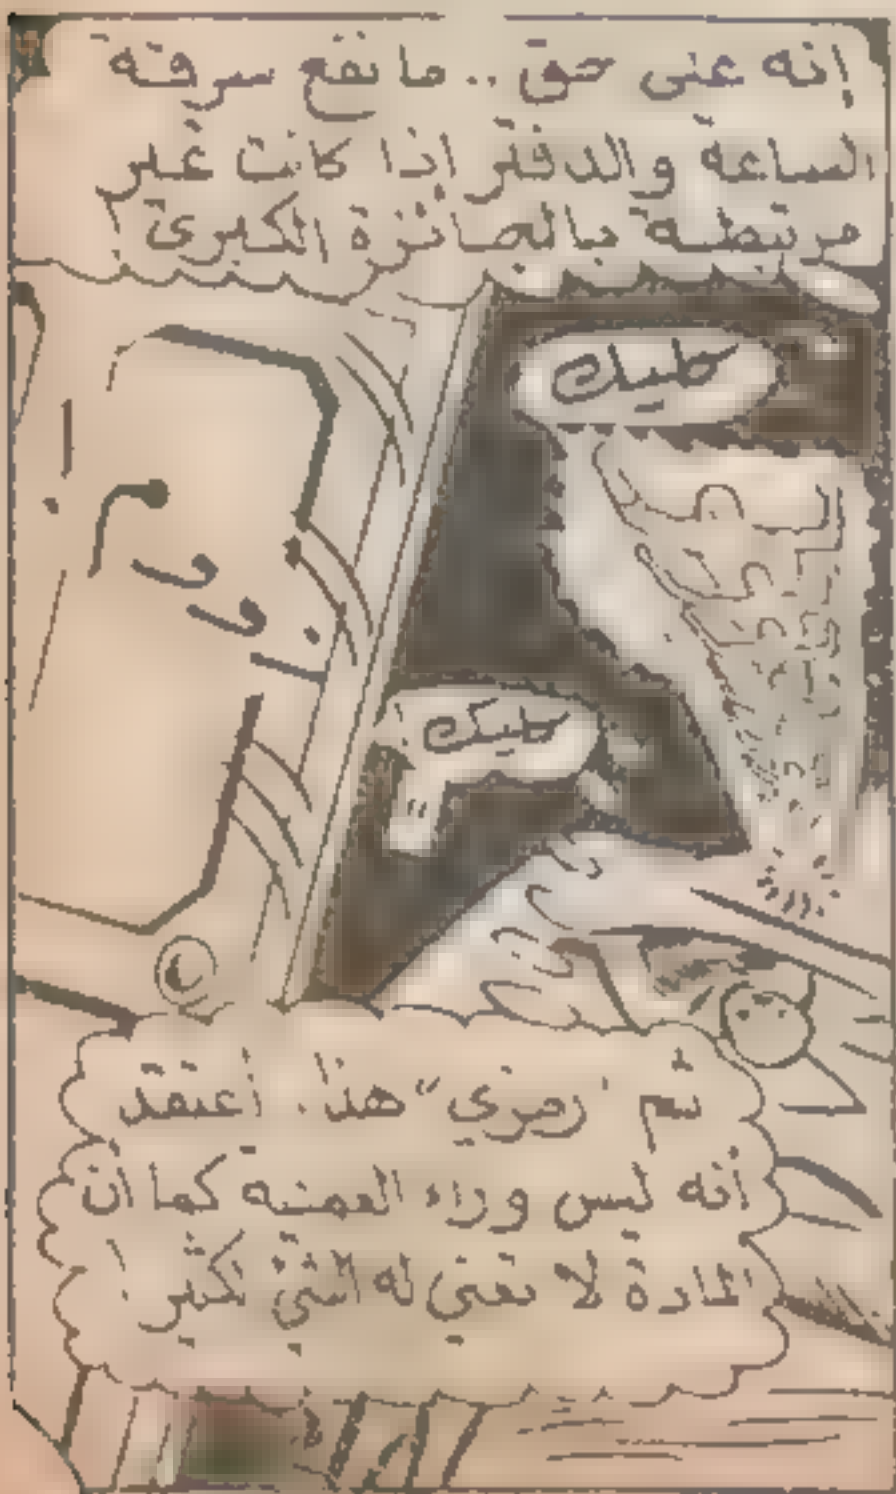 إنه على حق .. ما نفع سرقة
الساعة والدفتر إذا كانت غير
مرتبطة بالجائزة الكبرى
طيك
طيك !!
ثم "رمزي" هذا. أعتقد
أنه ليس وراء العملية كما أن
المادة لا تعني له الشيء الكثير !